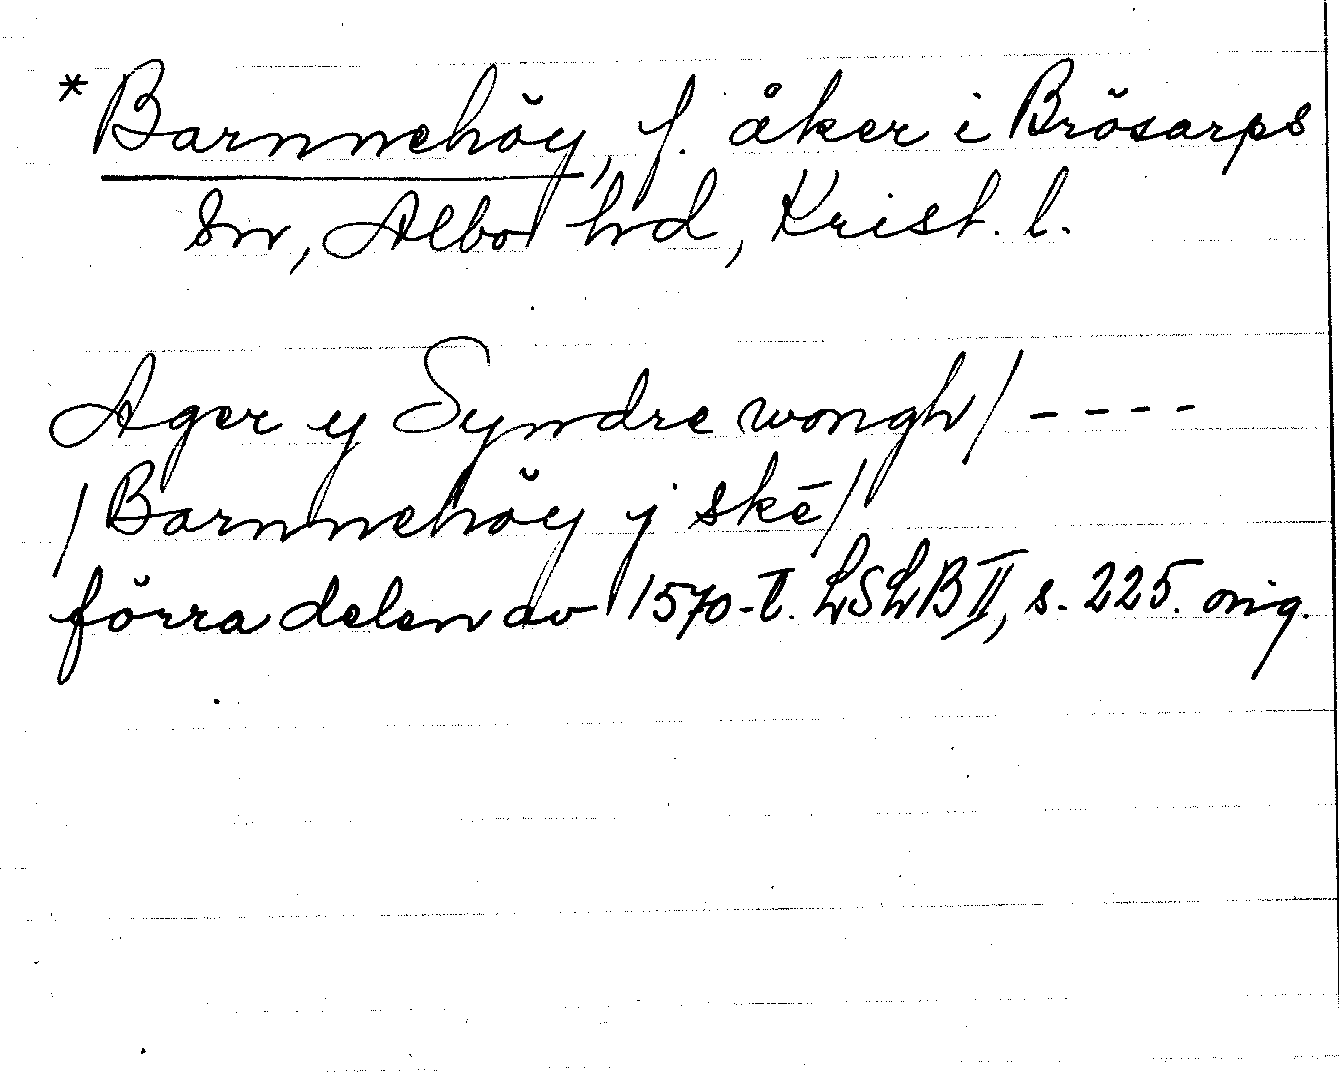 *Barnnehöy, f. åker i Brösarps
sn, Albo hd, Krist. l.
Ager y Syndre wongh/ ----
/Barnnehöy y skē/
förra delen av 1570-t. LSLB II, s. 225. orig.